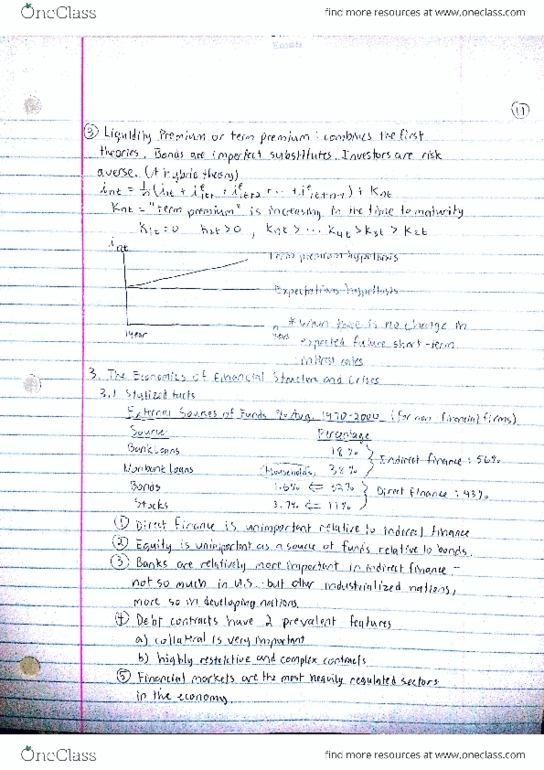 OneClass
find more resources at www.oneclass.com
11
③ Liquidity Premium or term premium: combines the first
theories. Bonds are imperfect substitutes. Investors are risk
averse. (A hybrid theory)
Knt = "term premium" is increasing in the time to maturity
K1t = 0 K2t > 0, Knt > ... K4t > K3t > K2t
int
Term premium hypothesis
Expectations hypothesis
1 year
n years
* When there is no change in
expected future short-term
interest rates
3. The Economics of Financial Structure and Crises
3.1 Stylized facts
External Sources of Funds % Avg. 1970-2000 (for non financial firms)
Source Percentage
Bank Loans 18%
Indirect finance: 56%
Nonbank Loans Households 38%
Bonds 32%
Direct Finance: 43%
Stocks 11%
① Direct finance is unimportant relative to indirect finance
② Equity is unimportant as a source of funds relative to bonds.
③ Banks are relatively more important in indirect finance -
not so much in U.S. but other industrialized nations,
more so in developing nations.
④ Debt contracts have 2 prevalent features
a) collateral is very important
b) highly restrictive and complex contracts
⑤ Financial markets are the most heavily regulated sectors
in the economy
OneClass
find more resources at www.oneclass.com